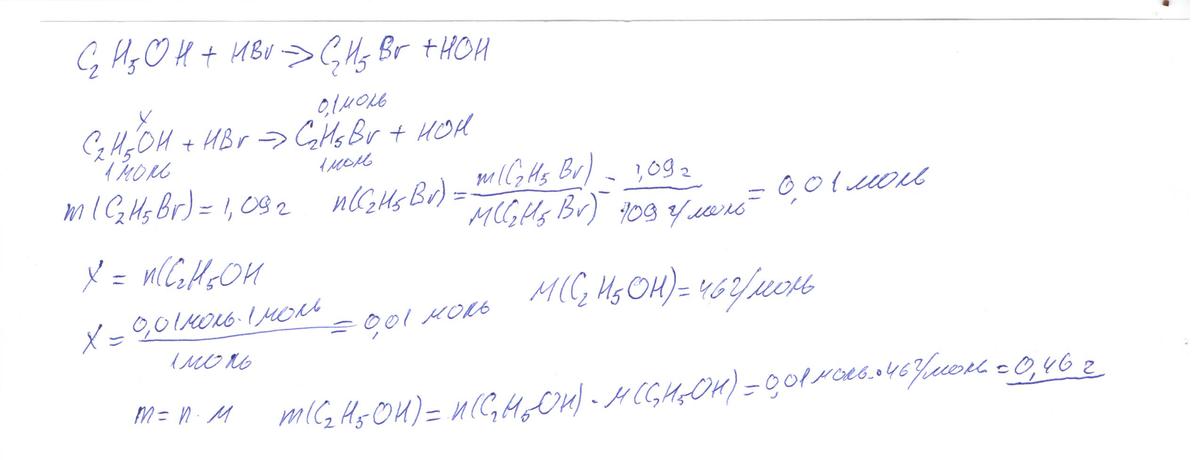 C₂H₅OH + HBr ⇒ C₂H₅Br + HOH
x 0,1моль
C₂H₅OH + HBr ⇒ C₂H₅Br + HOH
1моль 1моль
m(C₂H₅Br) = 1,09г n(C₂H₅Br) = m(C₂H₅Br) / M(C₂H₅Br) = 1,09г / 109 г/моль = 0,01моль
X = n(C₂H₅OH
M(C₂H₅OH) = 46г/моль
X = 0,01моль · 1моль / 1моль = 0,01 моль
m = n · M m(C₂H₅OH) = n(C₂H₅OH) · M(C₂H₅OH) = 0,01моль · 46г/моль = 0,46 г